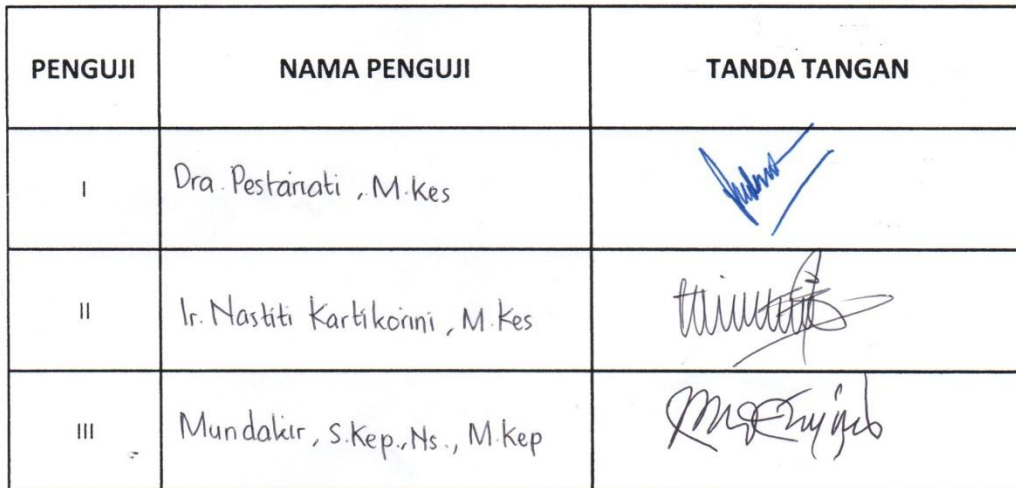 PENGUJI NAMA PENGUJI TANDA TANGAN
I Dra. Pestariati, M.Kes
II Ir. Nastiti Kartikorini, M.Kes
III Mundakir, S.Kep.,Ns., M.Kep